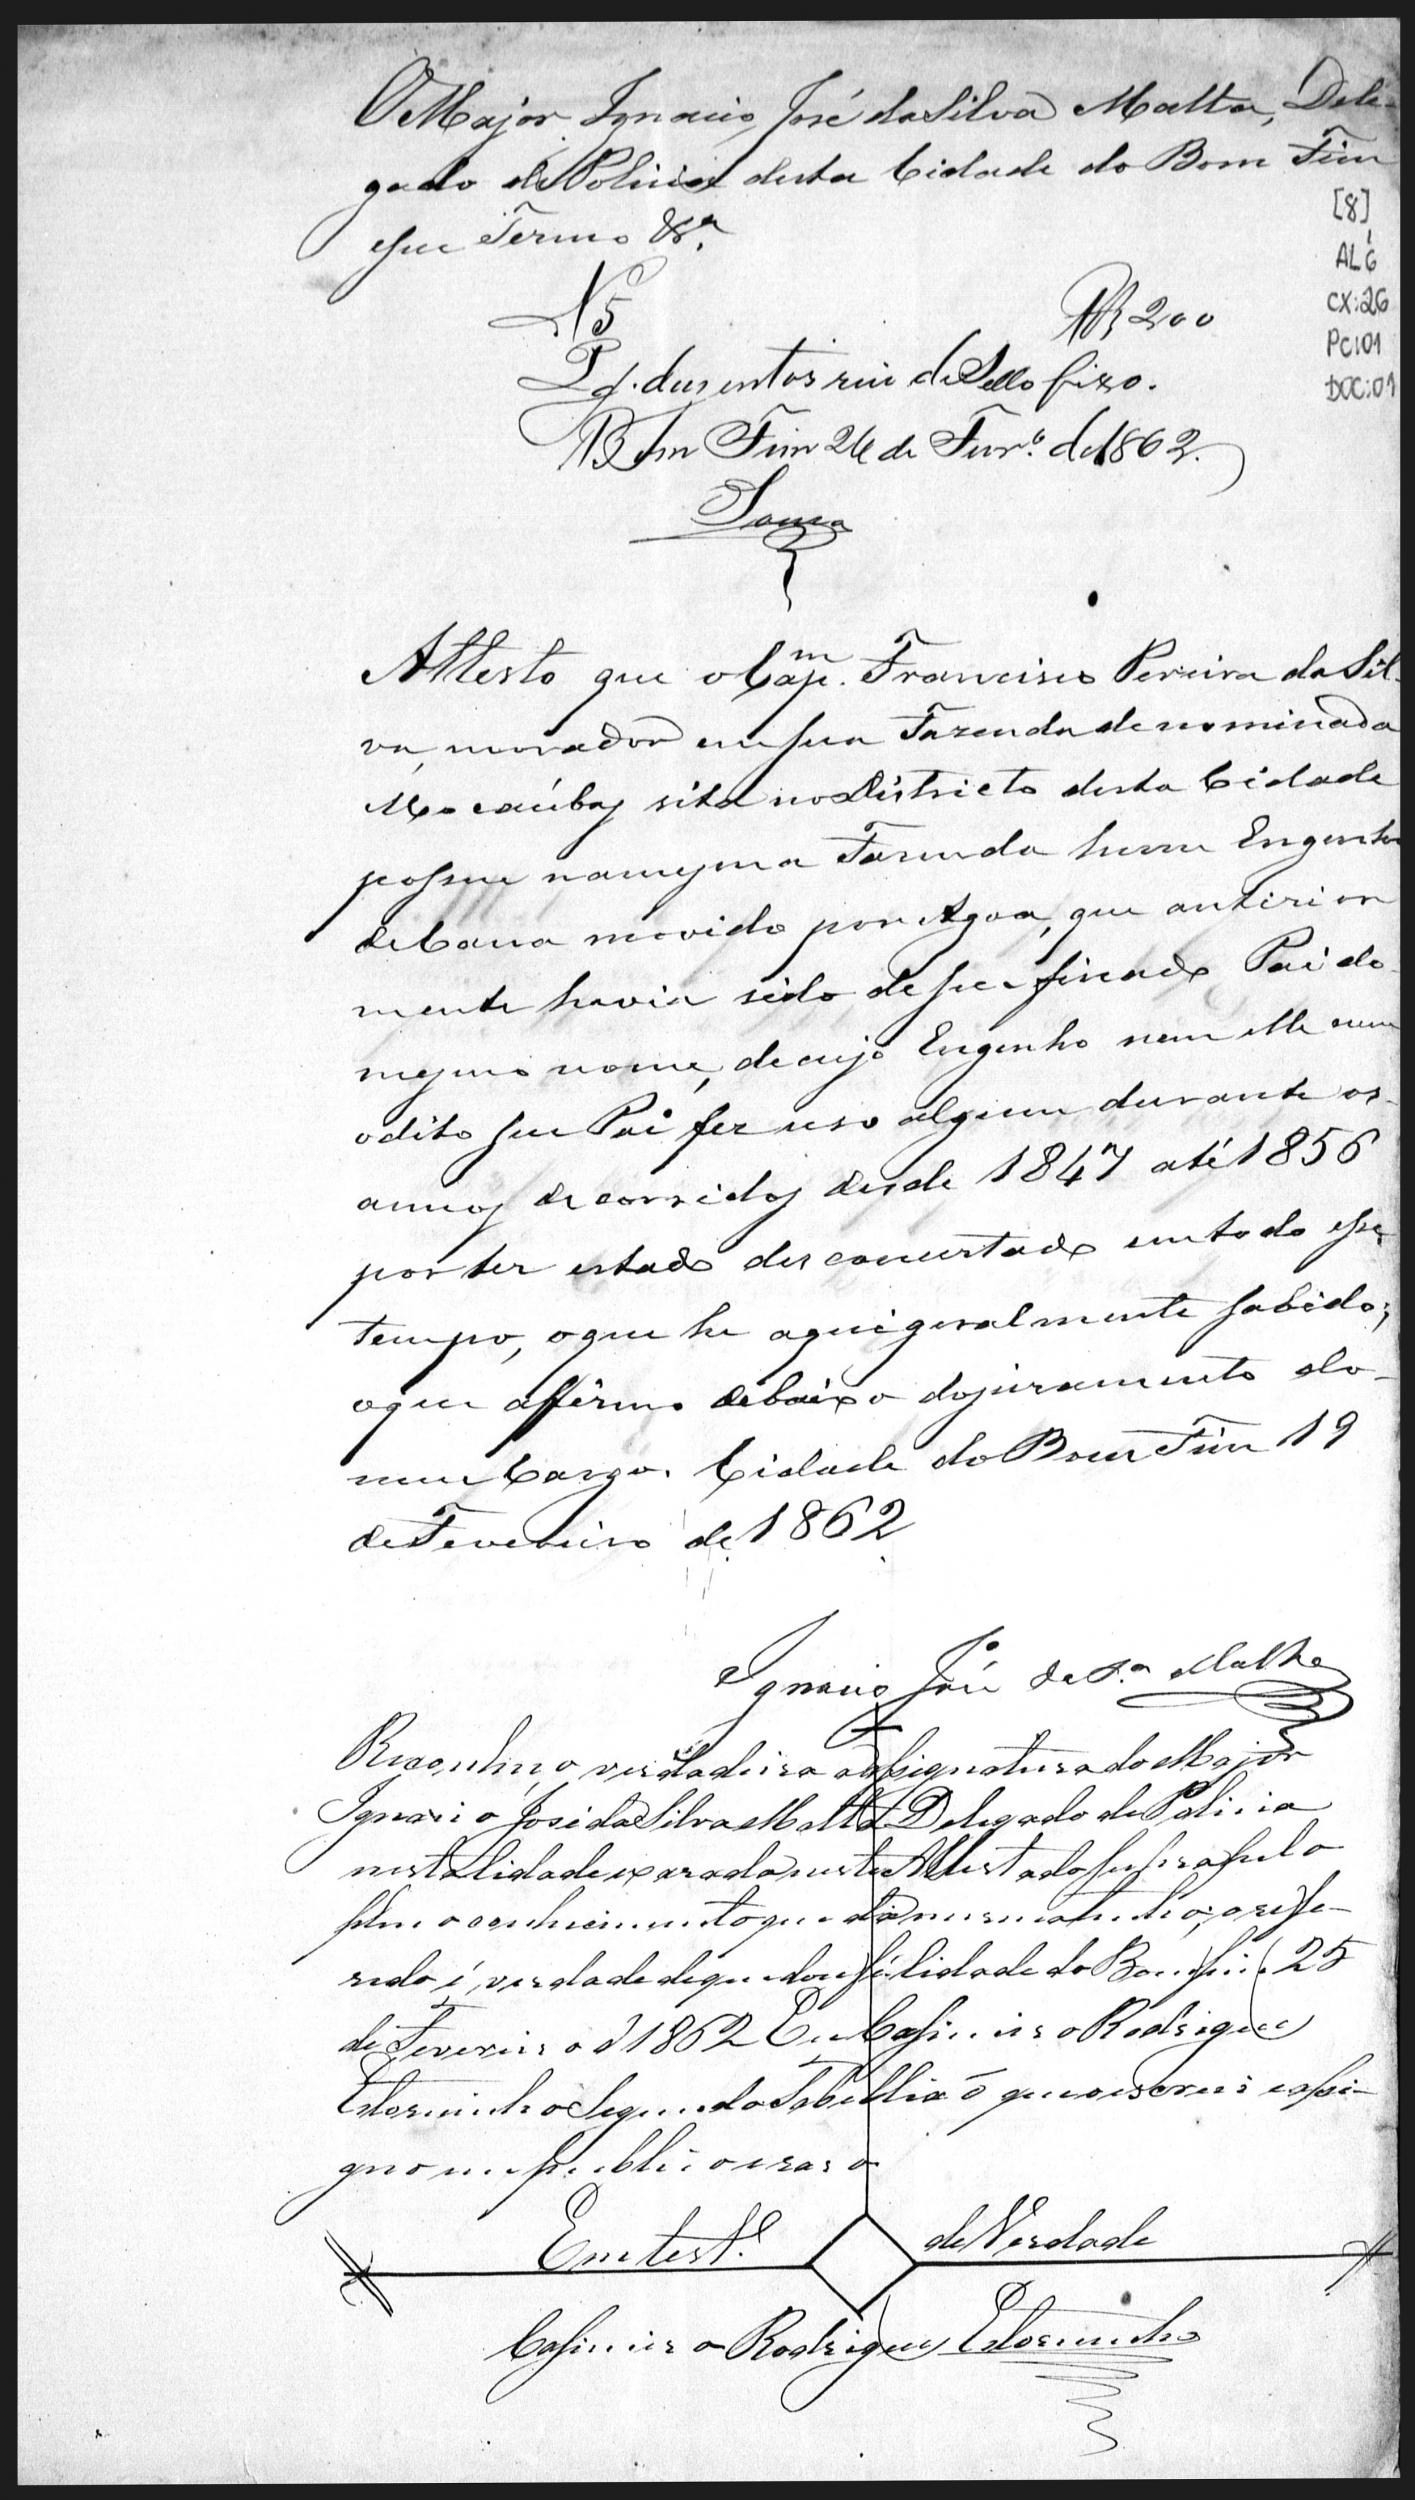 O Major Ignacio José da Silva Matta, Dele-
gado de Policia desta Cidade do Bom Fim
e seu Termo &ª.
[8]
AL6
CX:26
PC:01
DOC:01
N 5 Rs 200
Pg. duzentos reis de Sello fixo.
Bom Fim 26 de Fevr.º de 1862.
Souza
Attesto que o Capm. Francisco Pereira da Sil-
va, morador em sua Fazenda denominada
Macaúbas sita no Districto desta Cidade
possue na mesma Fazenda hum Engenho
de Cana movido por Agoa, que anterior
mente havia sido de seu finado Pai do
mesmo nome, de cujo Engenho nem elle nem
o dito seu Pai fez uso algum durante os
annos decorridos desde 1847 até 1856
por ter estado desconcertado em todo esse
tempo, o que he aqui geralmente sabido;
o que affirmo debaixo do juramento do
meu Cargo. Cidade do Bom Fim 19
de Fevereiro de 1862
Ignacio José da S.ª Matta
Reconheço verdadeira a assignatura do Major
Ignacio José da Silva Matta Delegado de Policia
nesta Cidade exarada neste Attestado supra pelo
pleno conhecimento que da mesma tenho; o refe-
redo é verdade de que dou fé. Cidade do Bomfim 25
de Fevereiro d 1862 Eu Casimiro Rodrigues
Segundo Tabellião que o escrevi e assi-
gno em publico e raso
Em test.º de Verdade
Casimiro Rodrigues